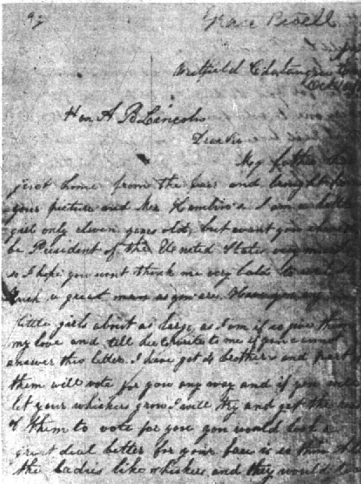 Grace Bedell
Westfield Chatauque
Hon A B Lincoln
Dear Sir
My father has
just home from the fair and brought
your picture and Mr. Hamlin's. I am a little
girl only eleven years old, but want you should
be President of the United States very
so I hope you wont think me very bold to
such a great man as you are. Have you any
little girls about as large as I am if so give them
my love and tell her to write to me if you cannot
answer this letter. I have got 4 brothers and part
them will vote for you any way and if you will
let your whiskers grow I will try and get the
of them to vote for you you would look a
great deal better for your face is so thin All
the ladies like whiskers and they would